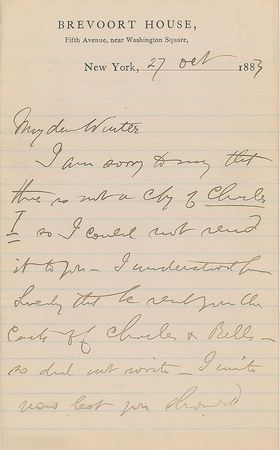 BREVOORT HOUSE,
Fifth Avenue, near Washington Square,
New York, 27 Oct 1883
My dear Winter
I am sorry to say that
there is not a copy of Charles
I so I could not send
it to you – I understood from
Loveday that he sent you the
Casts of Charles & Bells –
so did not write – I write
now lest you should